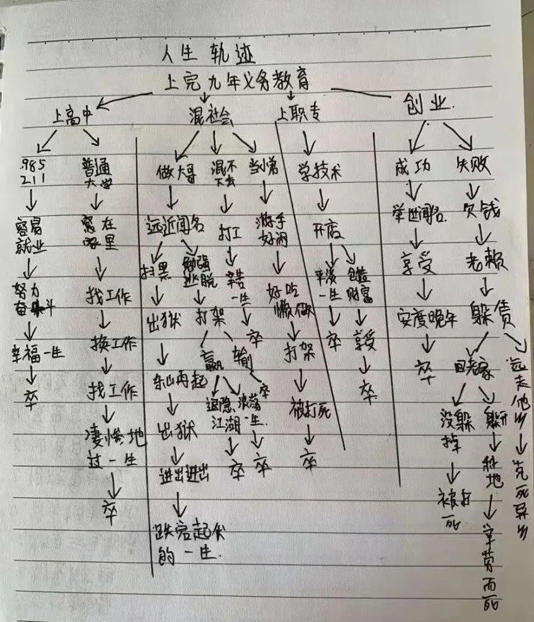 人生 轨迹
上完九年义务教育
上高中
混社会
上职专
创业.
985
211
容易
就业
努力
奋斗
幸福一生
卒
普通
大学
窝在
哪里
找工作
换工作
找工作
凄惨地
过一生
卒
做大哥
远近闻名
扫黑
出狱
东山再起
出狱
进出进出
跌宕起伏
的一生.
勉强
逃脱
打架
赢
退隐
江湖
卒
输
浪荡
一生.
卒
卒
混不
下去
打工
辛苦
一生
卒
当小弟
游手
好闲
好吃
懒做
打架
被打死
卒
学技术
开店
平淡
一生
卒
创造
财富
享受
卒
成功
举世闻名
享受
安度晚年
卒
失败
欠钱
老赖
躲债
回老家
没躲
掉
被打
死
躲
牲地
辛劳而
死
远走他乡
客死异乡